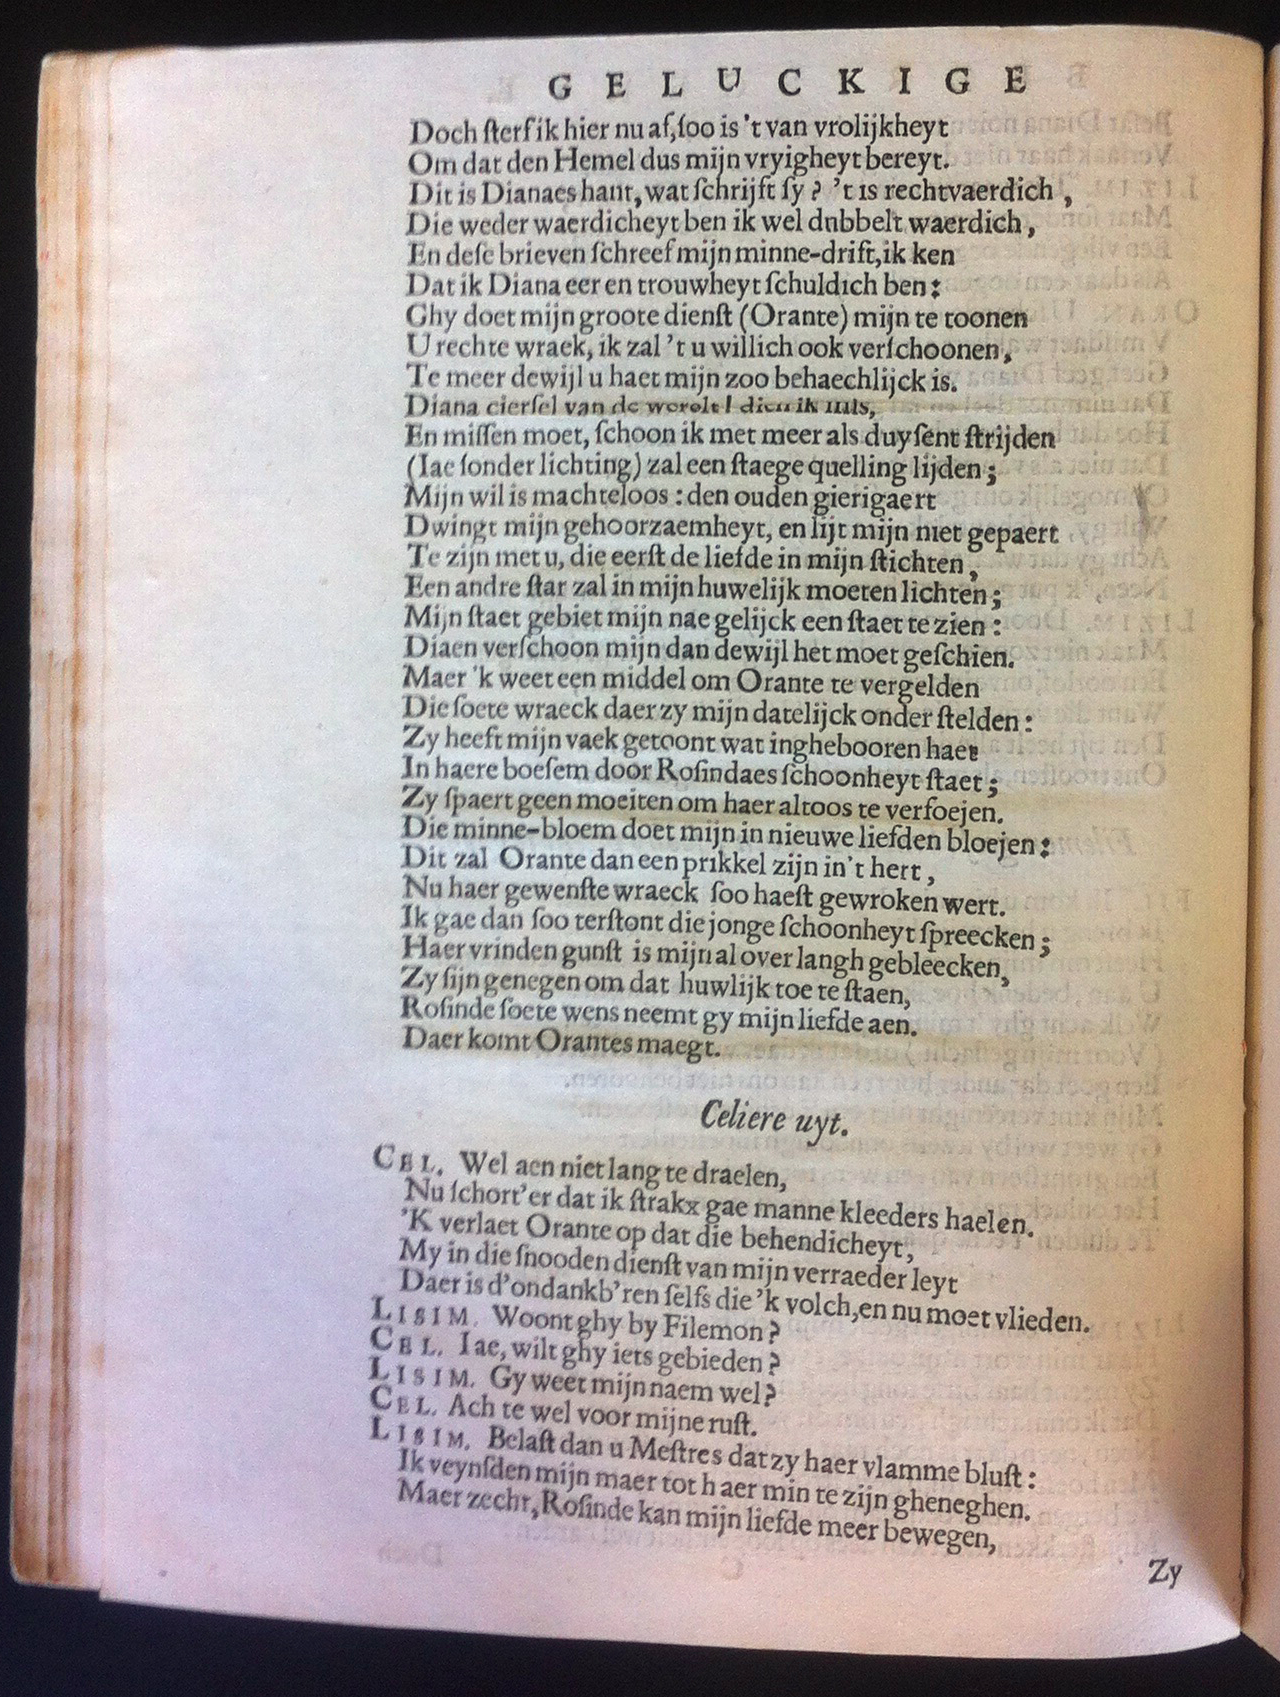 GELUCKIGE
Doch sterf ik hier nu af, soo is 't van vrolijkheyt
Om dat den Hemel dus mijn vryigheyt bereyt.
Dit is Dianaes hant, wat schrijft sy? 't is rechtvaerdich,
Die weder waerdicheyt ben ik wel dnbbelt waerdich,
En dese brieven schreef mijn minne-drift, ik ken
Dat ik Diana eer en trouwheyt schuldich ben:
Ghy doet mijn groote dienst (Orante) mijn te toonen
U rechte wraek, ik zal 't u willich ook verschoonen,
Te meer dewijl u haet mijn zoo behaechlijck is.
Diana ciersel van de werelt! dien ik mis,
En missen moet, schoon ik met meer als duysent strijden
(Iae sonder lichting) zal een staege quelling lijden;
Mijn wil is machteloos: den ouden gierigaert
Dwingt mijn gehoorzaemheyt, en lijt mijn niet gepaert
Te zijn met u, die eerst de liefde in mijn stichten,
Een andre star zal in mijn huwelijk moeten lichten;
Mijn staet gebiet mijn nae gelijck een staet te zien:
Diaen verschoon mijn dan dewijl het moet geschien.
Maer 'k weet een middel om Orante te vergelden
Die soete wraeck daer zy mijn datelijck onder stelden:
Zy heeft mijn vaek getoont wat inghebooren haet
In haere boesem door Rosindaes schoonheyt staet;
Zy spaert geen moeiten om haer altoos te verfoejen.
Die minne-bloem doet mijn in nieuwe liefden bloejen:
Dit zal Orante dan een prikkel zijn in't hert,
Nu haer gewenste wraeck soo haest gewroken wert.
Ik gae dan soo terstont die jonge schoonheyt spreecken;
Haer vrinden gunst is mijn al over langh gebleecken,
Zy sijn genegen om dat huwlijk toe te staen,
Rosinde soete wens neemt gy mijn liefde aen.
Daer komt Orantes maegt.
Celiere uyt.
CEL. Wel aen niet lang te draelen,
Nu schort'er dat ik strakx gae manne kleeders haelen.
'K verlaet Orante op dat die behendicheyt,
My in die snooden dienst van mijn verraeder leyt
Daer is d'ondankb'ren selfs die 'k volch, en nu moet vlieden.
LISIM. Woont ghy by Filemon?
CEL. Iae, wilt ghy iets gebieden?
LISIM. Gy weet mijn naem wel?
CEL. Ach te wel voor mijne rust.
LISIM. Belast dan u Mestres dat zy haer vlamme blust:
Ik veynsden mijn maer tot haer min te zijn gheneghen.
Maer zecht, Rosinde kan mijn liefde meer bewegen,
Zy